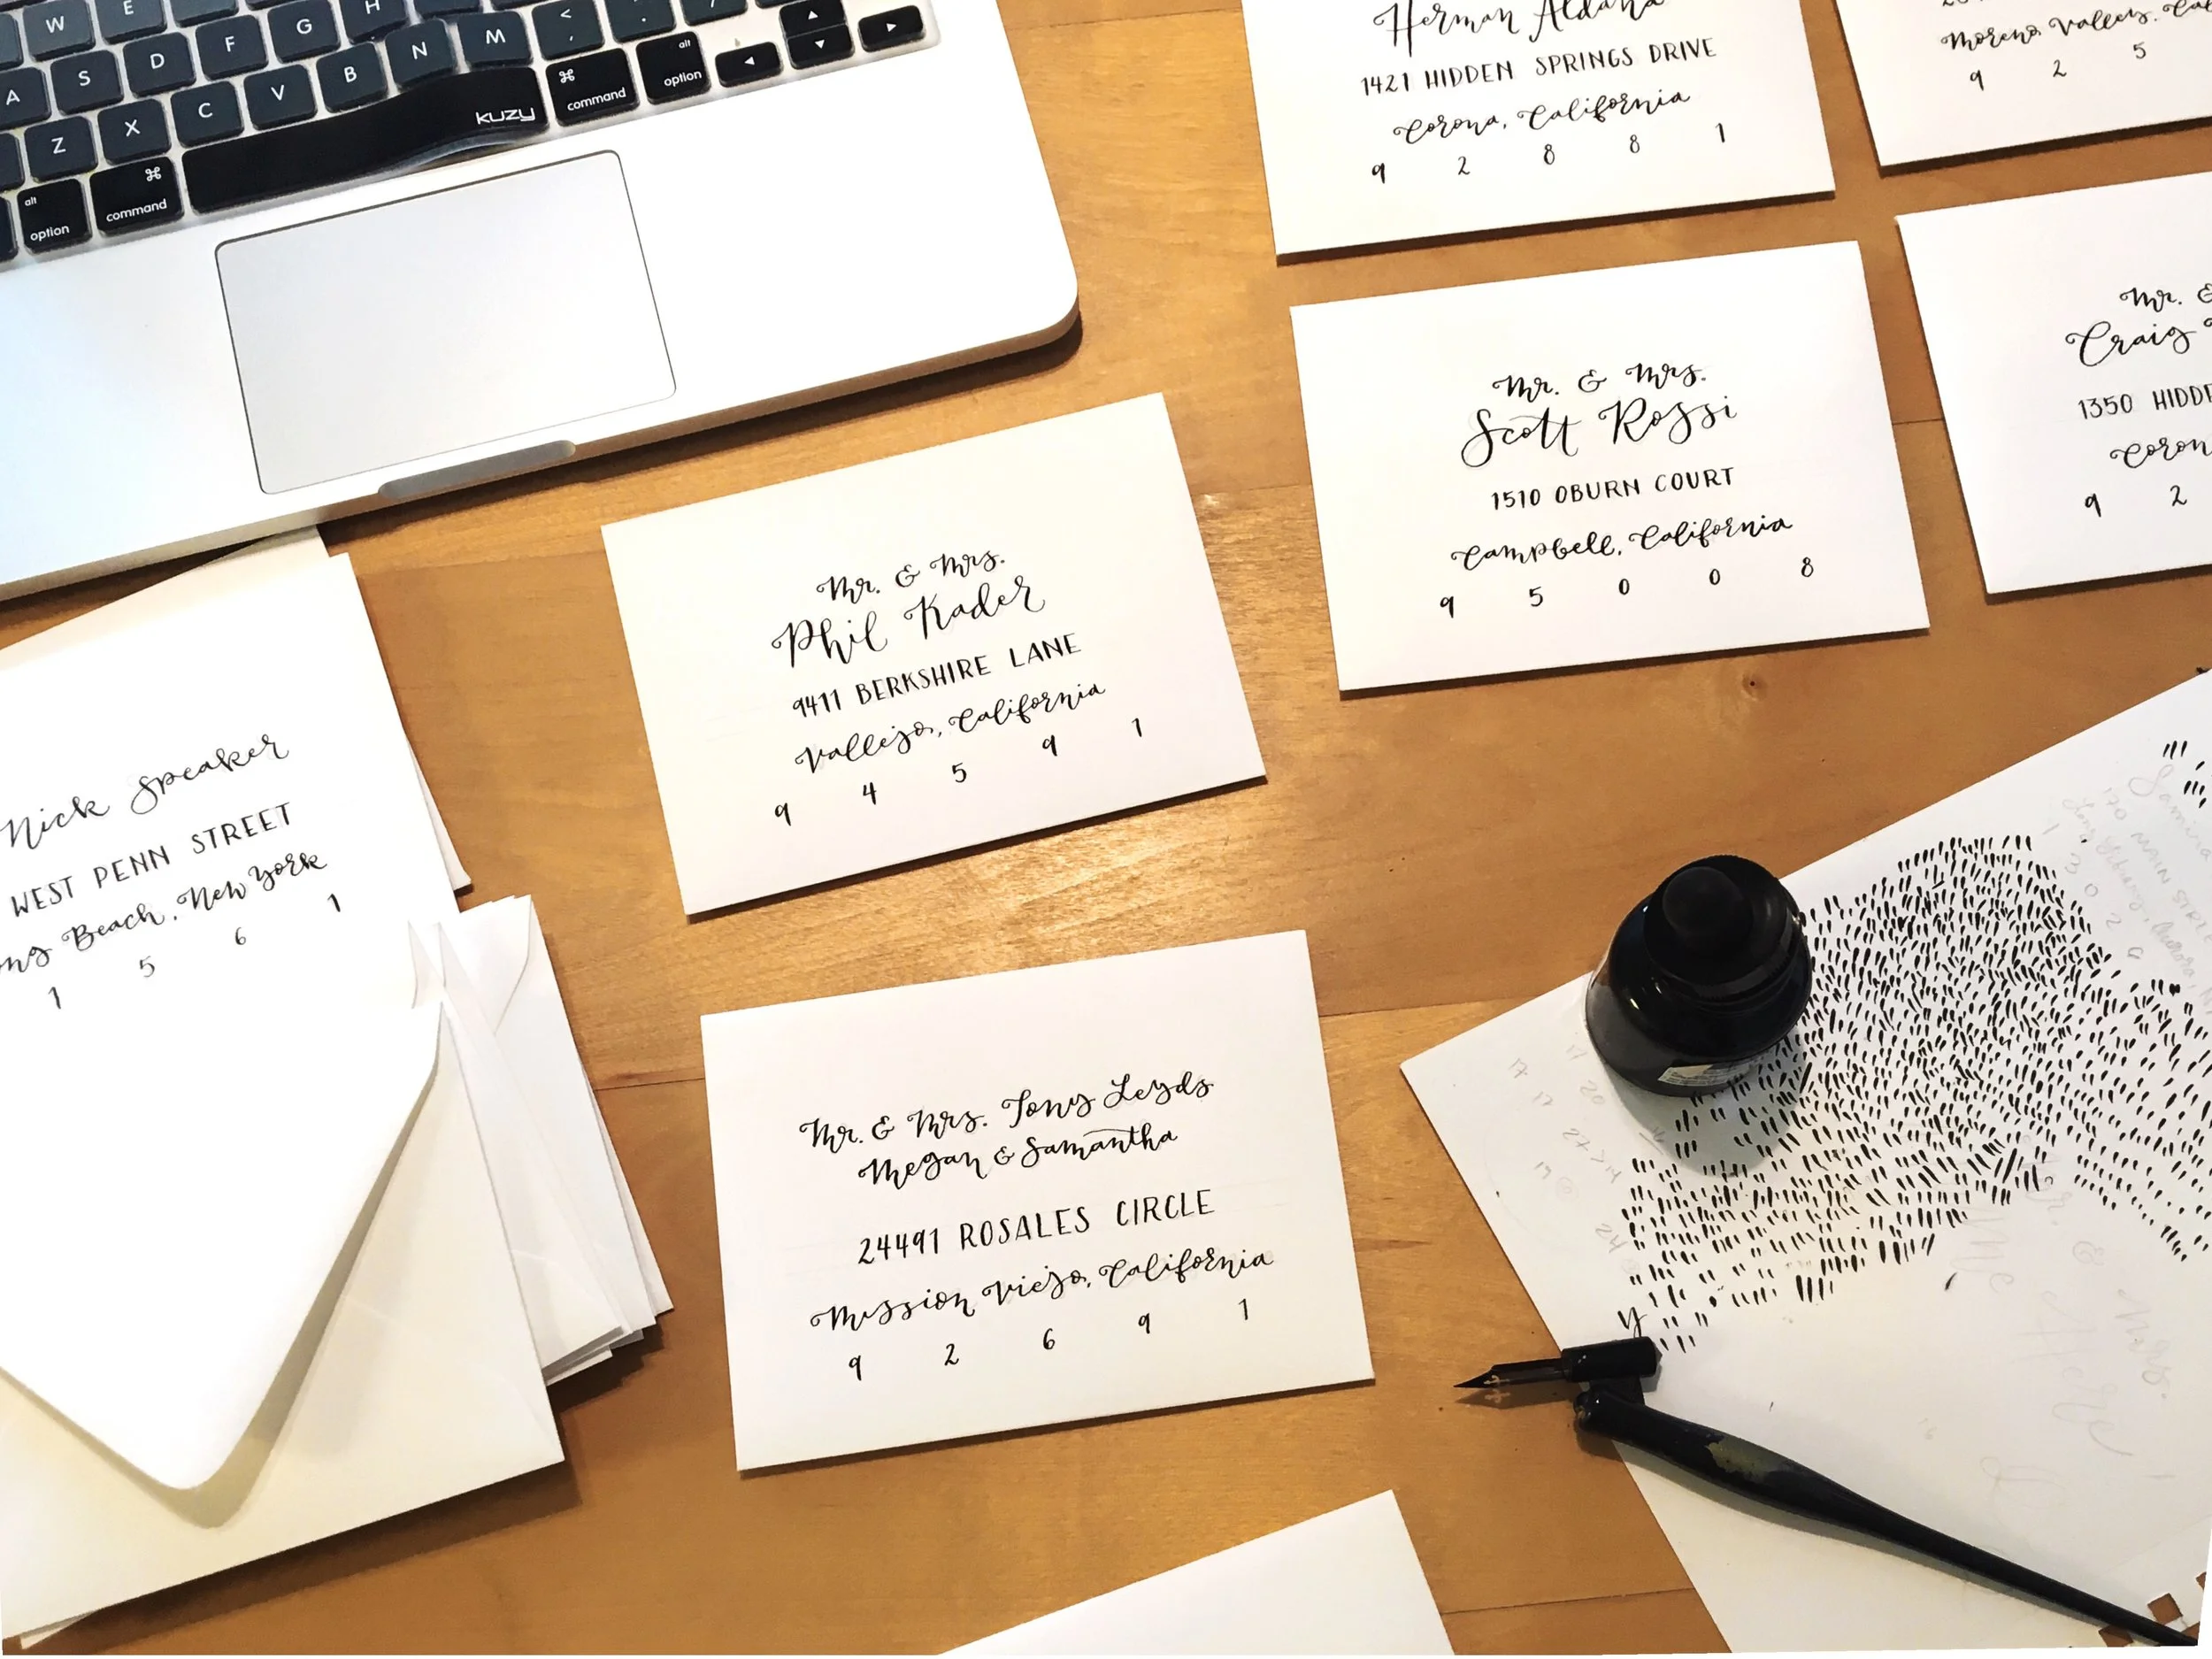 W E
A S D F G H
Z X C V B N M < ,
alt option
⌘ command
KUZY
⌘ command
alt option
Herman Aldana
1421 HIDDEN SPRINGS DRIVE
Corona, California
9 2 8 8 1
Moreno Valley,
9 2 5
Mr. & Mrs.
Scott Rossi
1510 OBURN COURT
Campbell, California
9 5 0 0 8
Mr. &
Craig
1350 HIDD
Coron
9 2
Mr. & Mrs.
Phil Kader
9411 BERKSHIRE LANE
Vallejo, California
9 4 5 9 1
Nick Speaker
WEST PENN STREET
ng Beach, New York
1 5 6 1
Mr. & Mrs. Tony Leyds
Megan & Samantha
24491 ROSALES CIRCLE
Mission Viejo, California
9 2 6 9 1
170 MAIN STREET
y
Mr. & Mrs.